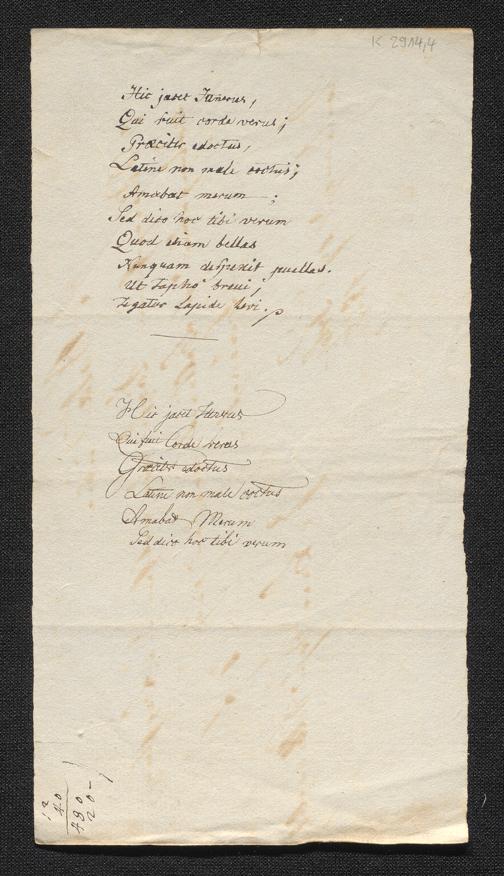 K 2914,4
Hic jacet Janrus,
Qui fuit corde verus;
Græcitir edoctus,
Latine non male coctus;
Amabat merum — ;
Sed dico hoc tibi verum
Quod etiam bellas
Nunquam despexit puellas.
Ut Tapho brevi,
Tegatur Lapide levi.
Hic jacet Janrus
Qui fuit Corde verus
Græcitir edoctus
Latine non male coctus
Amabat Merum
Sed dico hoc tibi verum
12
40
490
20